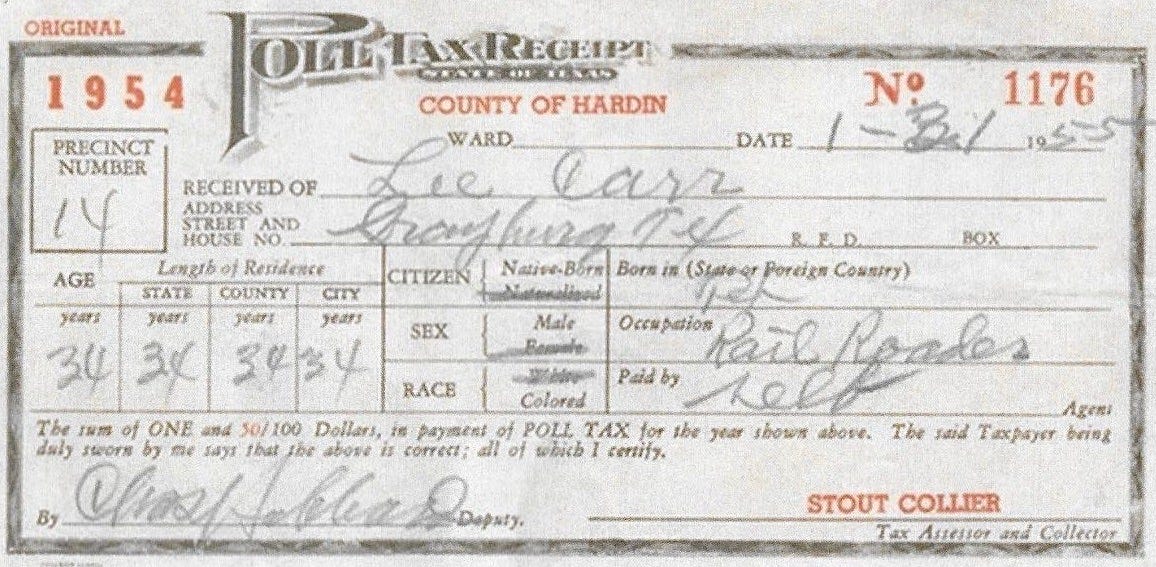 ORIGINAL
POLL TAX RECEIPT
STATE OF TEXAS
1954
COUNTY OF HARDIN
No. 1176
WARD DATE 1-31 1955
PRECINCT NUMBER
14
RECEIVED OF Lee Carr
ADDRESS
STREET AND
HOUSE NO. Grayburg Tex R. F. D. BOX
AGE Length of Residence
STATE COUNTY CITY
years years years years
34 34 34 34
CITIZEN Native-Born
Naturalized
Born in (State or Foreign Country)
Tex
SEX Male
Female
Occupation Rail Roader
RACE White
Colored
Paid by self Agent
The sum of ONE and 50/100 Dollars, in payment of POLL TAX for the year shown above. The said Taxpayer being
duly sworn by me says that the above is correct; all of which I certify.
By Deputy.
STOUT COLLIER
Tax Assessor and Collector